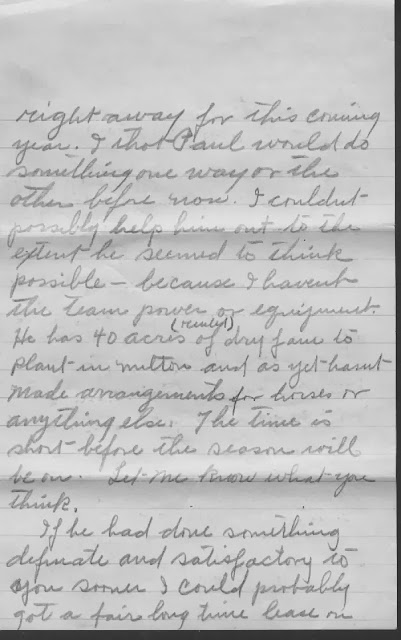 right away for this coming
year. I thot Paul would do
something one way or the
other before now. I couldnt
possibly help him out to the
extent he seemed to think
possible - because I havent
the team power or equipment.
(rented)
He has 40 acres of dry farm to
plant in Milton and as yet hasnt
made arrangements for horses or
anything else. The time is
short before the season will
be on. Let me know what you
think.
If he had done something
definate and satisfactory to
you sooner I could probably
got a fair long time lease on